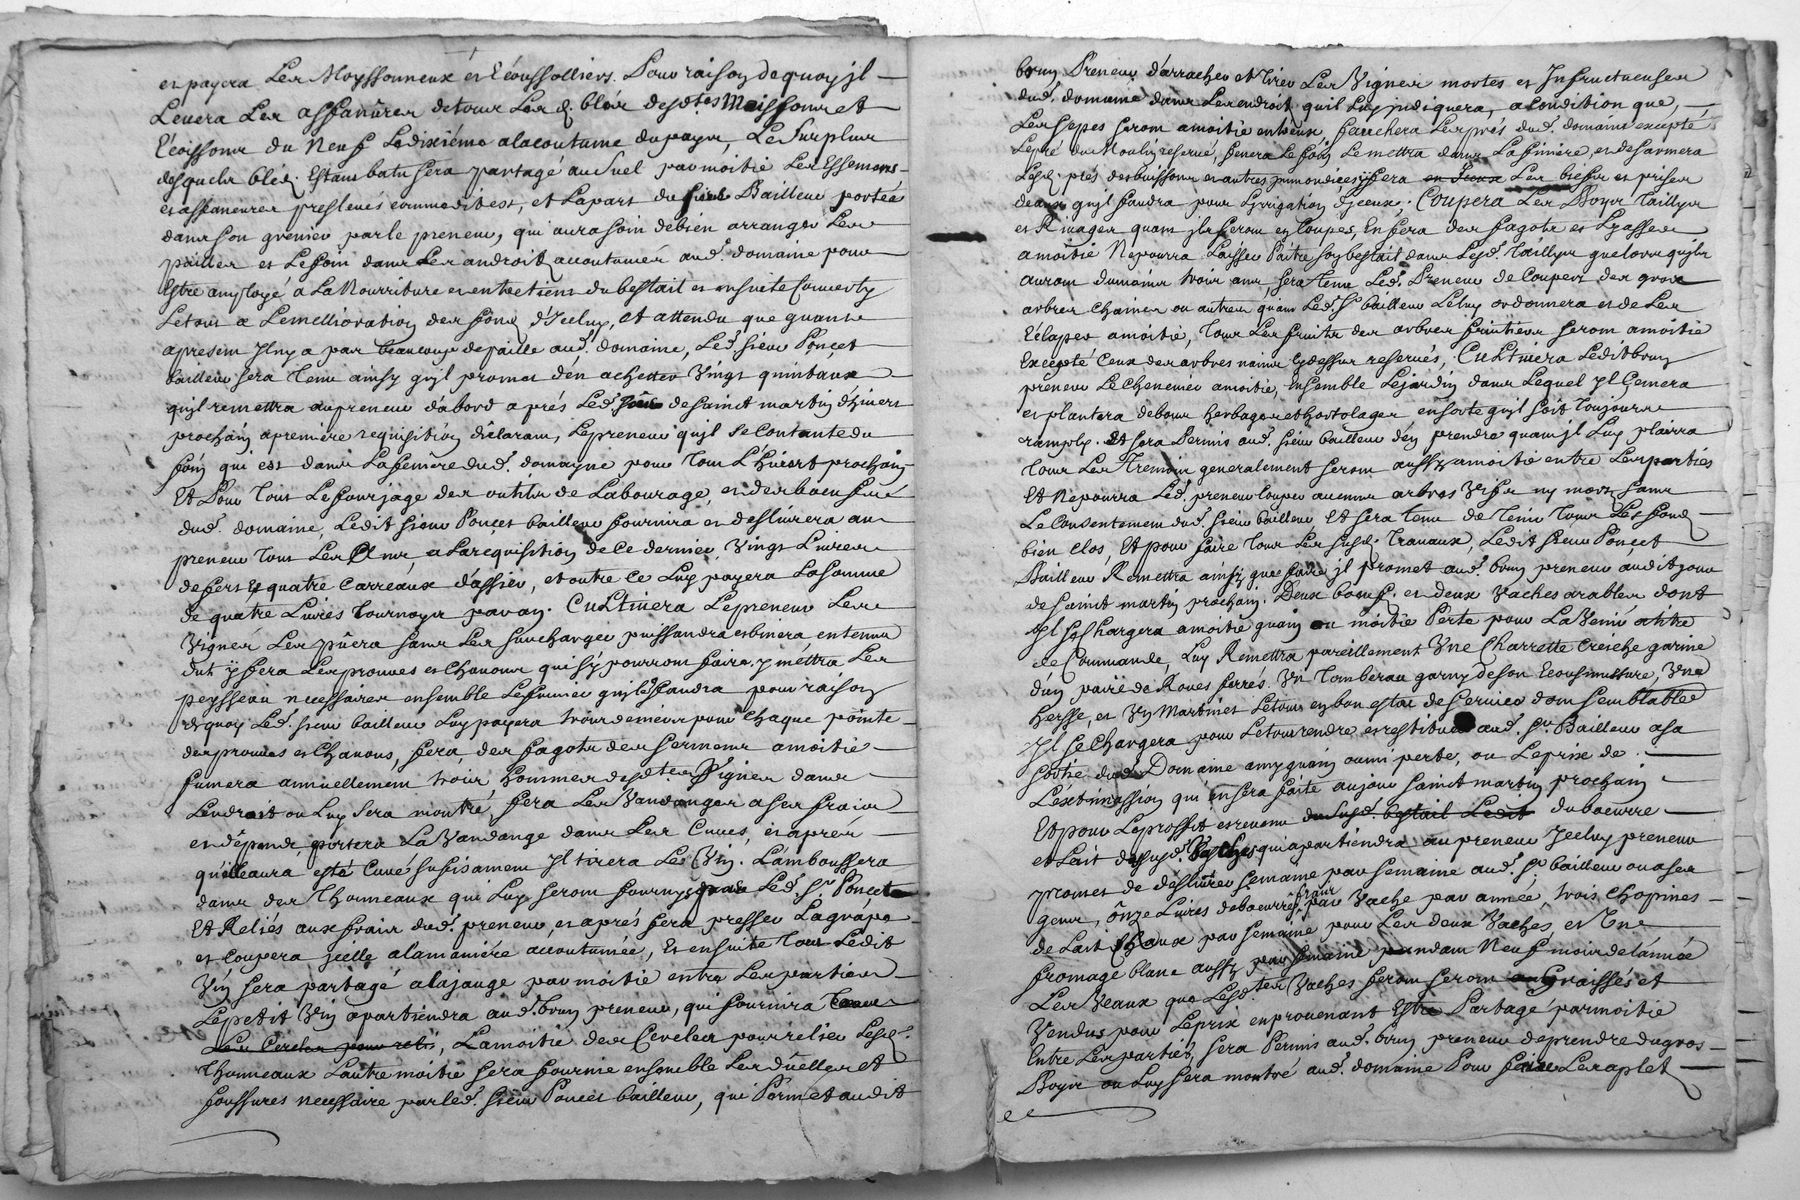 et payera Les Moyssonneux et Ecoussolliers. Pour raison de quoy jl
Levera Les affanures de tous Les d. bleds desdtes Moissons et
Ecoissons du Neuf Ledixiéme alacoutume dupays, Le Surplus
desquels bleds Estant batu sera partagé au Suel par moitié Les Essemens
et affaneures preslevés commedit est, et Lapart du sieur Bailleur portée
dans son grenier par le preneur, qui aura soin debien arranger Les
pailles et Lefoin dans Les androits accoutumés aud. domaine pour
Estre amployé a La Nourriture et entretiens du bestail et ensuite Converty
Letout a Lemellioration des fonds d'Jceluy, et attendu que quant
apresent Jlny a pas beaucoup depaille aud. domaine, Led. sieur Ponçet
bailleur sera Tenu ainsy quil promet den achetter Vingt quintaux
quil remettra aupreneur d'abord aprés Led. jour de saint martin d'hivert
prochain apremiere requisition déclarant, Lepreneur quil se Contante du
foin qui est dans Lafeniére dud. domayne pour Tout L'hivert prochain
Et Pour Tout Lefourjage des outils de Labourage, et des boeufs
dud. domaine, Ledit sieur Ponçet bailleur fournira et deslivrera au
preneur Tous Les ans, a Larequisition de Ce dernier Vingt Livres
de fert et quatre Carreaux d'assier, et outre Ce Luy payera La somme
de quatre Livres Tournoys par an. Cultivera Lepreneur Les
Vignes Les puêra sans Les surcharger puissandra et binera en temps
dut y fera Les prouves et Chanous qui s'y pourront faire, y mettra Les
peysseau necessaires ensemble Lefumier quil faudra pour raison
de quoy Led. sieur bailleur Luy payera trois deniers pour Chaque pointe
des prouves et Chanous, fera des fagots des serments amoitié
fumera annuellement trois hommes desdtes Vignes dans
Lendroit ou Luy sera montré, fera Les Vandanges a ses frais
et dépends portera La Vandange dans Les Cuves, et aprés
quelleaura esté Cuvé sufisament Jl tirera Le Vin. L'amboussera
dans des Thonneaux qui Luy seront fournys par Led. Sr Ponçet
Et Reliés aux frais dud. preneur, et aprés fera presser Lagrape
et Coupera jcelle alamaniére accoutumée, Et ensuite Tout Ledit
Vin sera partagé alajauge par moitié entre Les parties
Lepetit Vin apartiendra aud. brun preneur, qui fournira
Les Cercles pour rel, Lamoitié des Cercles pour relier Lesd.
Thonneaux Lautre moitié sera fournie ensemble Les düelles et
fonssures necessaire par led. sieur Ponçet bailleur, qui Permet audit
brun Preneur d'arracher et Tirer Les Vignes mortes et Infructueuses
dud. domaine dans Lesendroit quil Luy jndiquera, a Condition que,
Les sepes seront amoitié entreux, fauchera Les prés dud. domaine excepté
Lepré du Moulin reservé, fenera Le foin Le mettra dans Lafiniére, et desarmera
Lesd. prés des buissons et autres jmmondices y fera en Jceux Les biefs et prises
deaux quil faudra pour Lyrrigation d'Jceux; Coupera Les Boys Taillys
et Rivages quant jls seront en Coupes, En fera des fagots et Lyasses
amoitié Ne pourra Laisser Paitre son bestail dans Lesd. Taillys quelorsquils
auront dumoins trois ans, sera Tenu Led. Preneur de Couper des gros
arbres Chaines ou autres quant Led. Sr bailleur Leluy ordonnera et de Les
Eclaper amoitié, Tous Les fruits des arbres fruitiers seront amoitié
Excepté Ceux des arbres nains Cydessus reservés, Cultivera Ledit brun
preneur Le Chenevier amoitié, Ensemble Lejardin dans Lequel Jl semera
et plantera debons herbages et hortolages ensorte quil soit Toujours
ramply. Et sera Permis aud. sieur bailleur d'en prendre quant jl Luy plairra
Tous Les Tremois generalement seront aussy amoitié entre Les parties
Et Ne pourra Led. preneur Couper aucuns arbres Verts ny morts sans
Le Consentement dud. sieur bailleur Et sera tenu de Tenir Tous Les fonds
bien Clos, Et pour faire Tous Les susd. Travaux, Ledit sieur Ponçet
Bailleur Remettra ainsy que faire jl promet aud. brun preneur audit jour
de saint martin prochain. Deux boeufs et deux Vaches arables dont
Jl se Chargera amoitié guain ou moitié Perte pour La Veüie atitre
de Commande, Luy Remettra pareillement Vne Charrette Creiche garnie
d'un pairé de Roues ferrés. Vn Tomberau garny de son Ecousmesture, Vne
Hersse, et Vn Martinet Letout en bon estat de service dont semblable
Jl se Chargera pour Letout rendre et restituer aud. Sr Bailleur asa
sortie dud. Domaine amy guain ou mi perte, ou Leprix de
Lestimassion qui en sera faite aujour saint martin prochain
Et pour Leproffit et revenu du susd. bestail Ledit du beurre
et Lait desusd. Vaches qui apartiendra au preneur Jceluy preneur
promet de deslivrer semaine par semaine aud. Sr bailleur ou ases
gens, ônze Livres de beurre pour Vache par année, trois Chopines
de Lait Chaux par semaine pour Les deux Vaches, et Vne
fromage blanc aussy par semaine pendant Neuf mois de L'année
Les Veaux que Lesdtes Vaches feront seront angraissés et
Vendus pour Leprix en provenant Estre Partagé par moitié
Entre Les parties, sera Permis aud. brun preneur de prendre du gros
Boys ou Luy sera montré aud. domaine Pour faire Les aplets